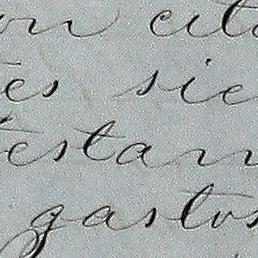 on cita
tes sie
testam
gastos